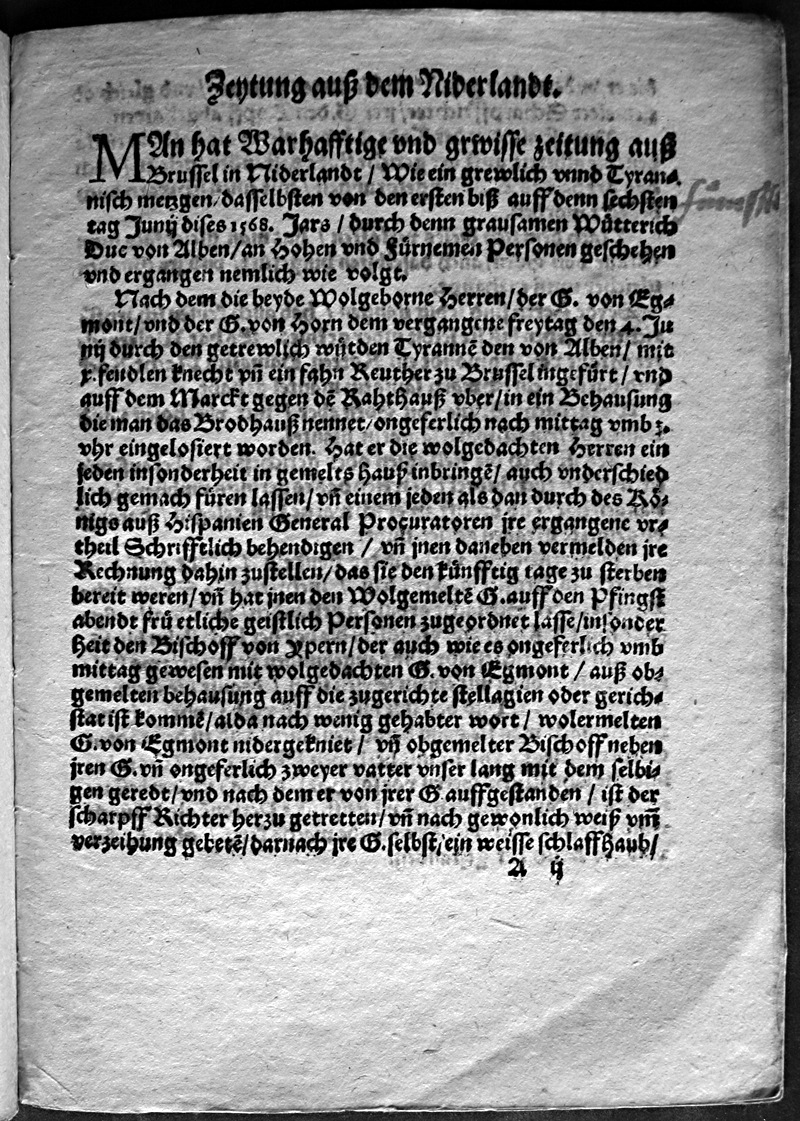 Zeytung auß dem Niderlandt.
MAn hat Warhafftige vnd grwisse zeitung auß
Brussel in Niderlandt / Wie ein grewlich vnnd Tyran⸗
nisch metzgen / dasselbsten von den ersten biß auff denn sechsten
tag Junij dises 1568. Jars / durch denn grausamen Wütterich
Duc von Alben / an Hohen vnd Fürnemen Personen geschehen
vnd ergangen nemlich wie volgt.
Nach dem die beyde Wolgeborne Herren / der G. von Eg⸗
mont / vnd der G. von Horn dem vergangene freytag den 4. Ju
nij durch den getrewlich wütden Tyrannē den von Alben / mit
x. fendlen knecht vñ ein fahn Reuther zu Brussel ingefürt / vnd
auff dem Marckt gegen dē Rahthauß vber / in ein Behausung
die man das Brodhauß nennet / ongeferlich nach mittag vmb 3.
vhr eingelosiert worden. Hat er die wolgedachten Herren ein
jeden insonderheit in gemelts hauß inbringē / auch vnderschied
lich gemach füren lassen / vñ einem jeden als dan durch des Kö⸗
nigs auß Hispanien General Procuratoren jre ergangene vr⸗
theil Schrifftlich behendigen / vñ jnen daneben vermelden jre
Rechnung dahin zustellen / das sie den künfftig tage zu sterben
bereit weren / vñ hat jnen den Wolgemeltē G. auff den Pfingst
abendt frü etliche geistlich Personen zugeordnet lasse / insonder
heit den Bischoff von Ypern / der auch wie es ongeferlich vmb
mittag gewesen mit wolgedachten G. von Egmont / auß ob⸗
gemelten behausung auff die zugerichte stellagien oder gerich⸗
stat ist kommē / alda nach wenig gehabter wort / wolermelten
G. von Egmont nidergekniet / vñ obgemelter Bischoff neben
jren G. vñ ongeferlich zweyer vatter vnser lang mit dem selbi⸗
gen geredt / vnd nach dem er von jrer G auffgestanden / ist der
scharpff Richter herzu getretten / vñ nach gewonlich weiß vm̄
verzeihung gebetē / darnach jre G. selbst / ein weisse schlaffhaub /
A ij